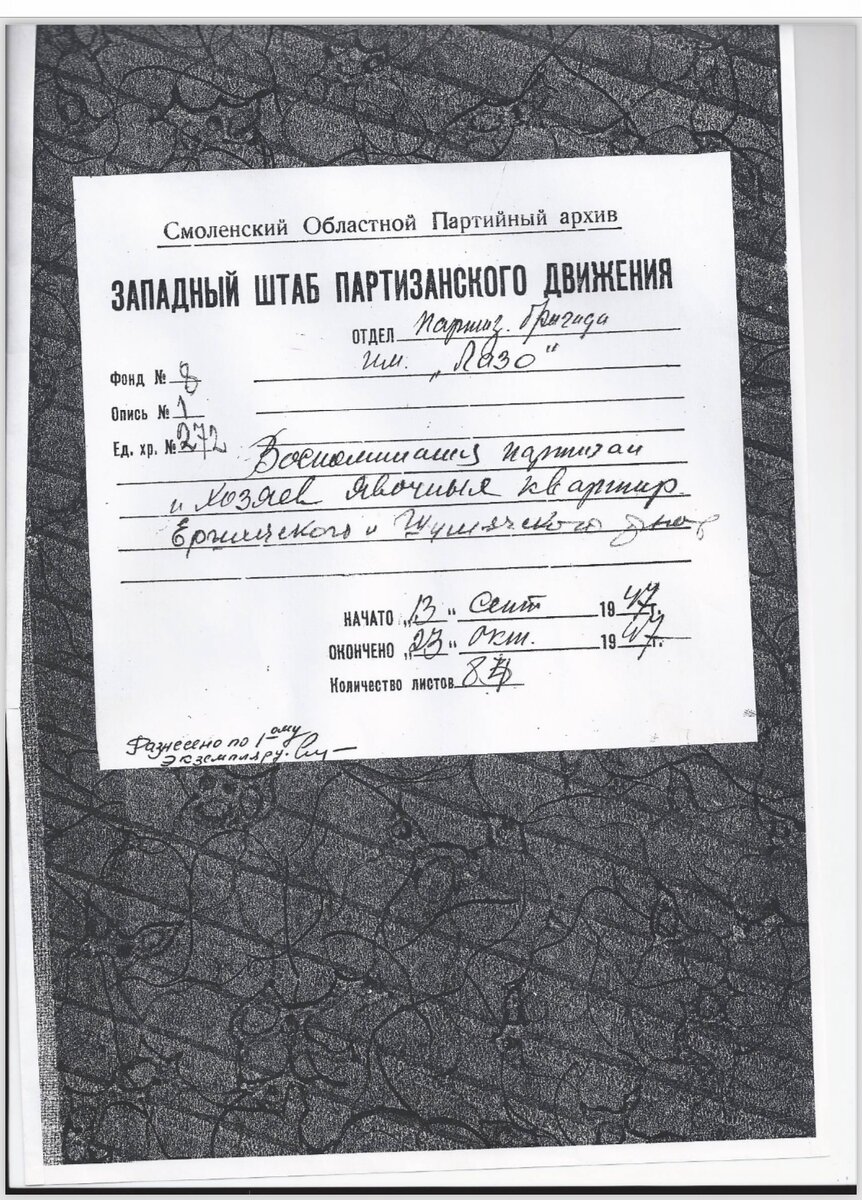 Смоленский Областной Партийный архив
ЗАПАДНЫЙ ШТАБ ПАРТИЗАНСКОГО ДВИЖЕНИЯ
ОТДЕЛ Партиз. бригада
им. „Лазо"
Фонд № 8
Опись № 1
Ед. хр. № 272
Воспоминания партизан
и хозяев явочных квартир
Ершичского и Шумячского
НАЧАТО „13" Сент 1947 г.
ОКОНЧЕНО „23" окт. 1947 г.
Количество листов
Разнесено по 1ому
экземпляру.